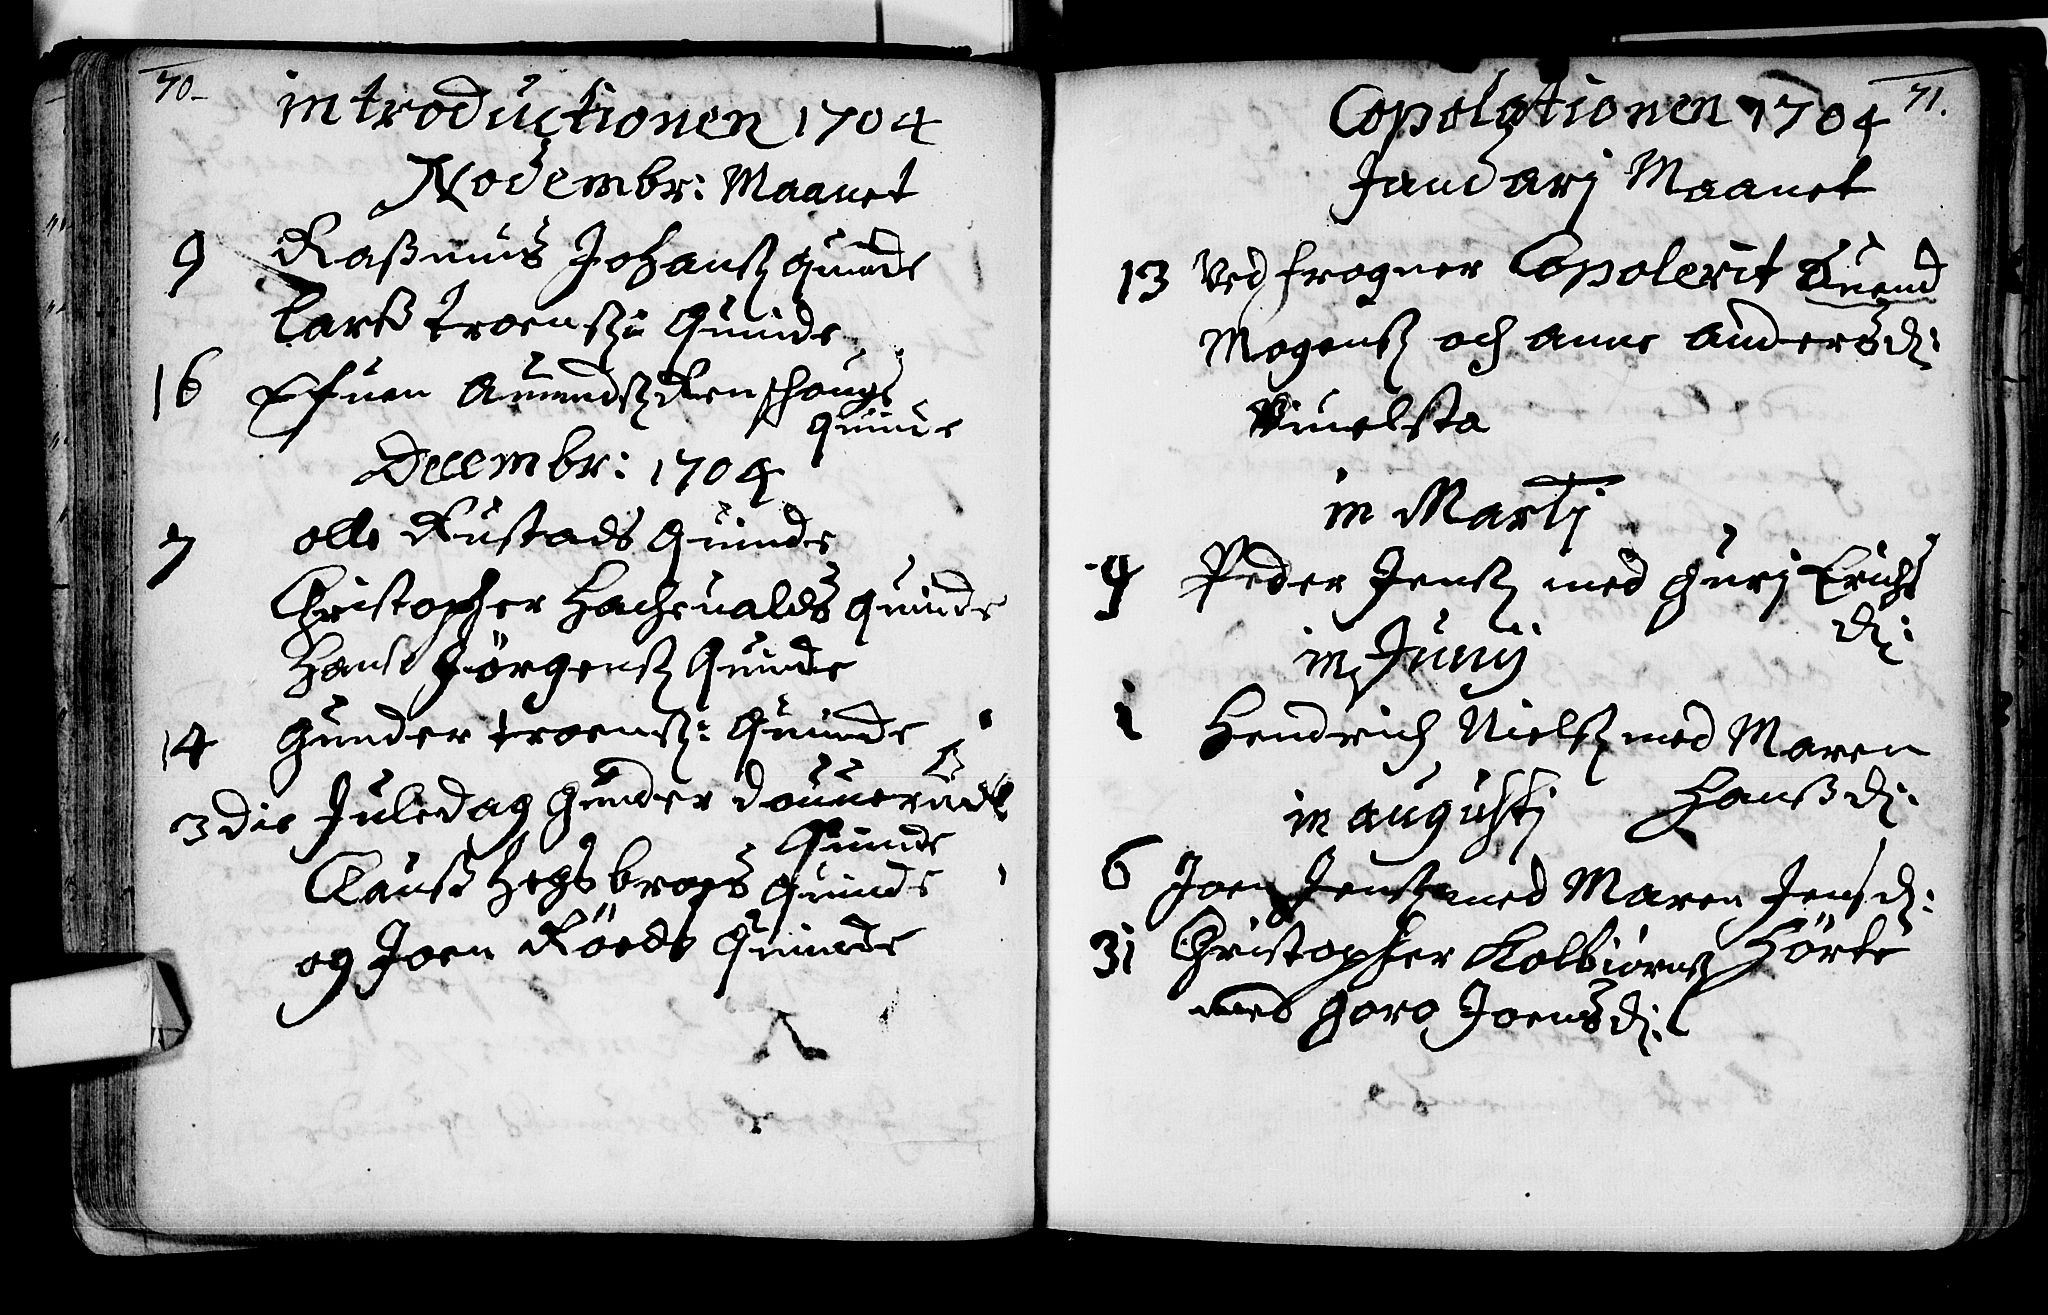 70
introductionen 1704
Novembr: Maanet
9 Raßmus Johanß quinde
Larß troenß: Quinde
16 Efuen Amundß Renschougs
Quinde
Decembr: 1704
7 olle Rustads Quinde
Christopher Hachevalds quinde
Hanß Jörgenß Quinde
14 Gunder troenß: Quinde
3die Juledag Gunder
Quinde
Clauß quinde
og Joen Röeds Quinde
71.
Copolationen 1704
Januarj Maanet
13 Ved frogner Copolerit Amend
Mogenß och anne andersd:
Vinelsta
in Martj
9 Peder Jenß med Gurj Erichs
d:
in Junij
i Hendrich Nielß med Maren
Hanßd:
in augustj
6 Joen Jenß med Maren Jensd:
3i Christopher Kolbiörnß Hörte
med Goro Joensd: